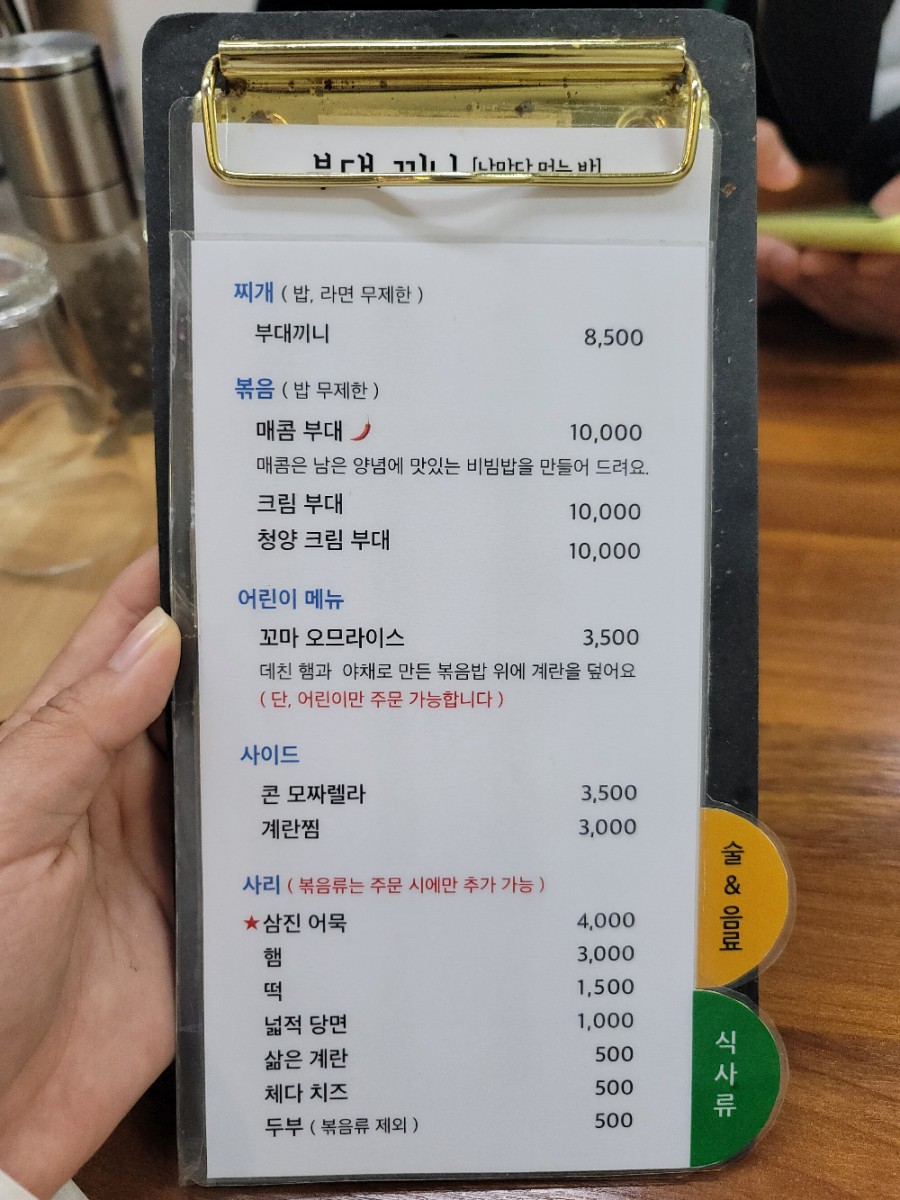 찌개 ( 밥, 라면 무제한 )
부대끼니 8,500
볶음 ( 밥 무제한 )
매콤 부대 10,000
매콤은 남은 양념에 맛있는 비빔밥을 만들어 드려요.
크림 부대 10,000
청양 크림 부대 10,000
어린이 메뉴
꼬마 오므라이스 3,500
데친 햄과 야채로 만든 볶음밥 위에 계란을 덮어요
( 단, 어린이만 주문 가능합니다 )
사이드
콘 모짜렐라 3,500
계란찜 3,000
사리 ( 볶음류는 주문 시에만 추가 가능 )
★삼진 어묵 4,000
햄 3,000
떡 1,500
넓적 당면 1,000
삶은 계란 500
체다 치즈 500
두부 ( 볶음류 제외 ) 500
술 & 음료
식사류